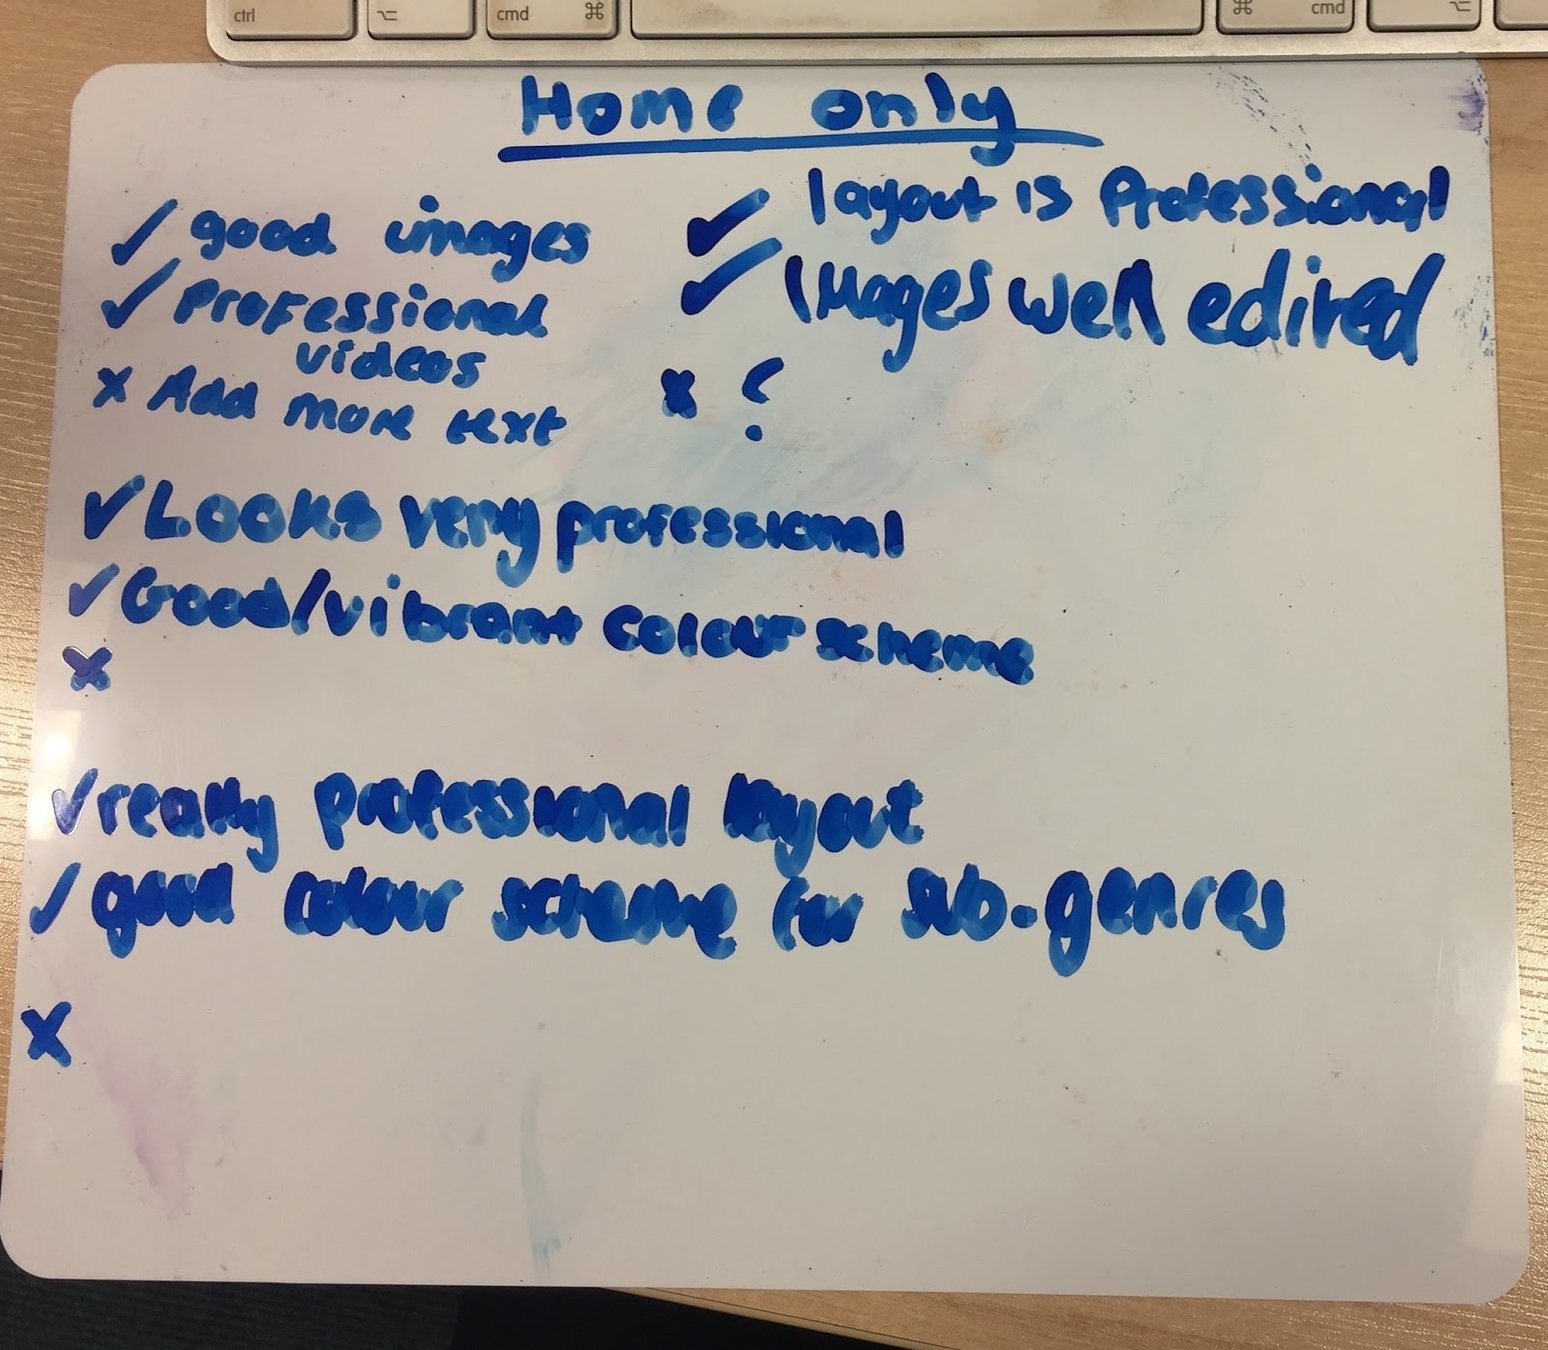 ctrl ⌥ cmd ⌘ ⌘ cmd ⌥
Home only
✓ good images
✓ Professional
videos
x Add more text
✓ layout is Professional
✓ Images well edited
x ?
✓ Looks very professional
✓ Good/vibrant colour scheme
x
✓ really professional layout
✓ good colour scheme for sub-genres
x